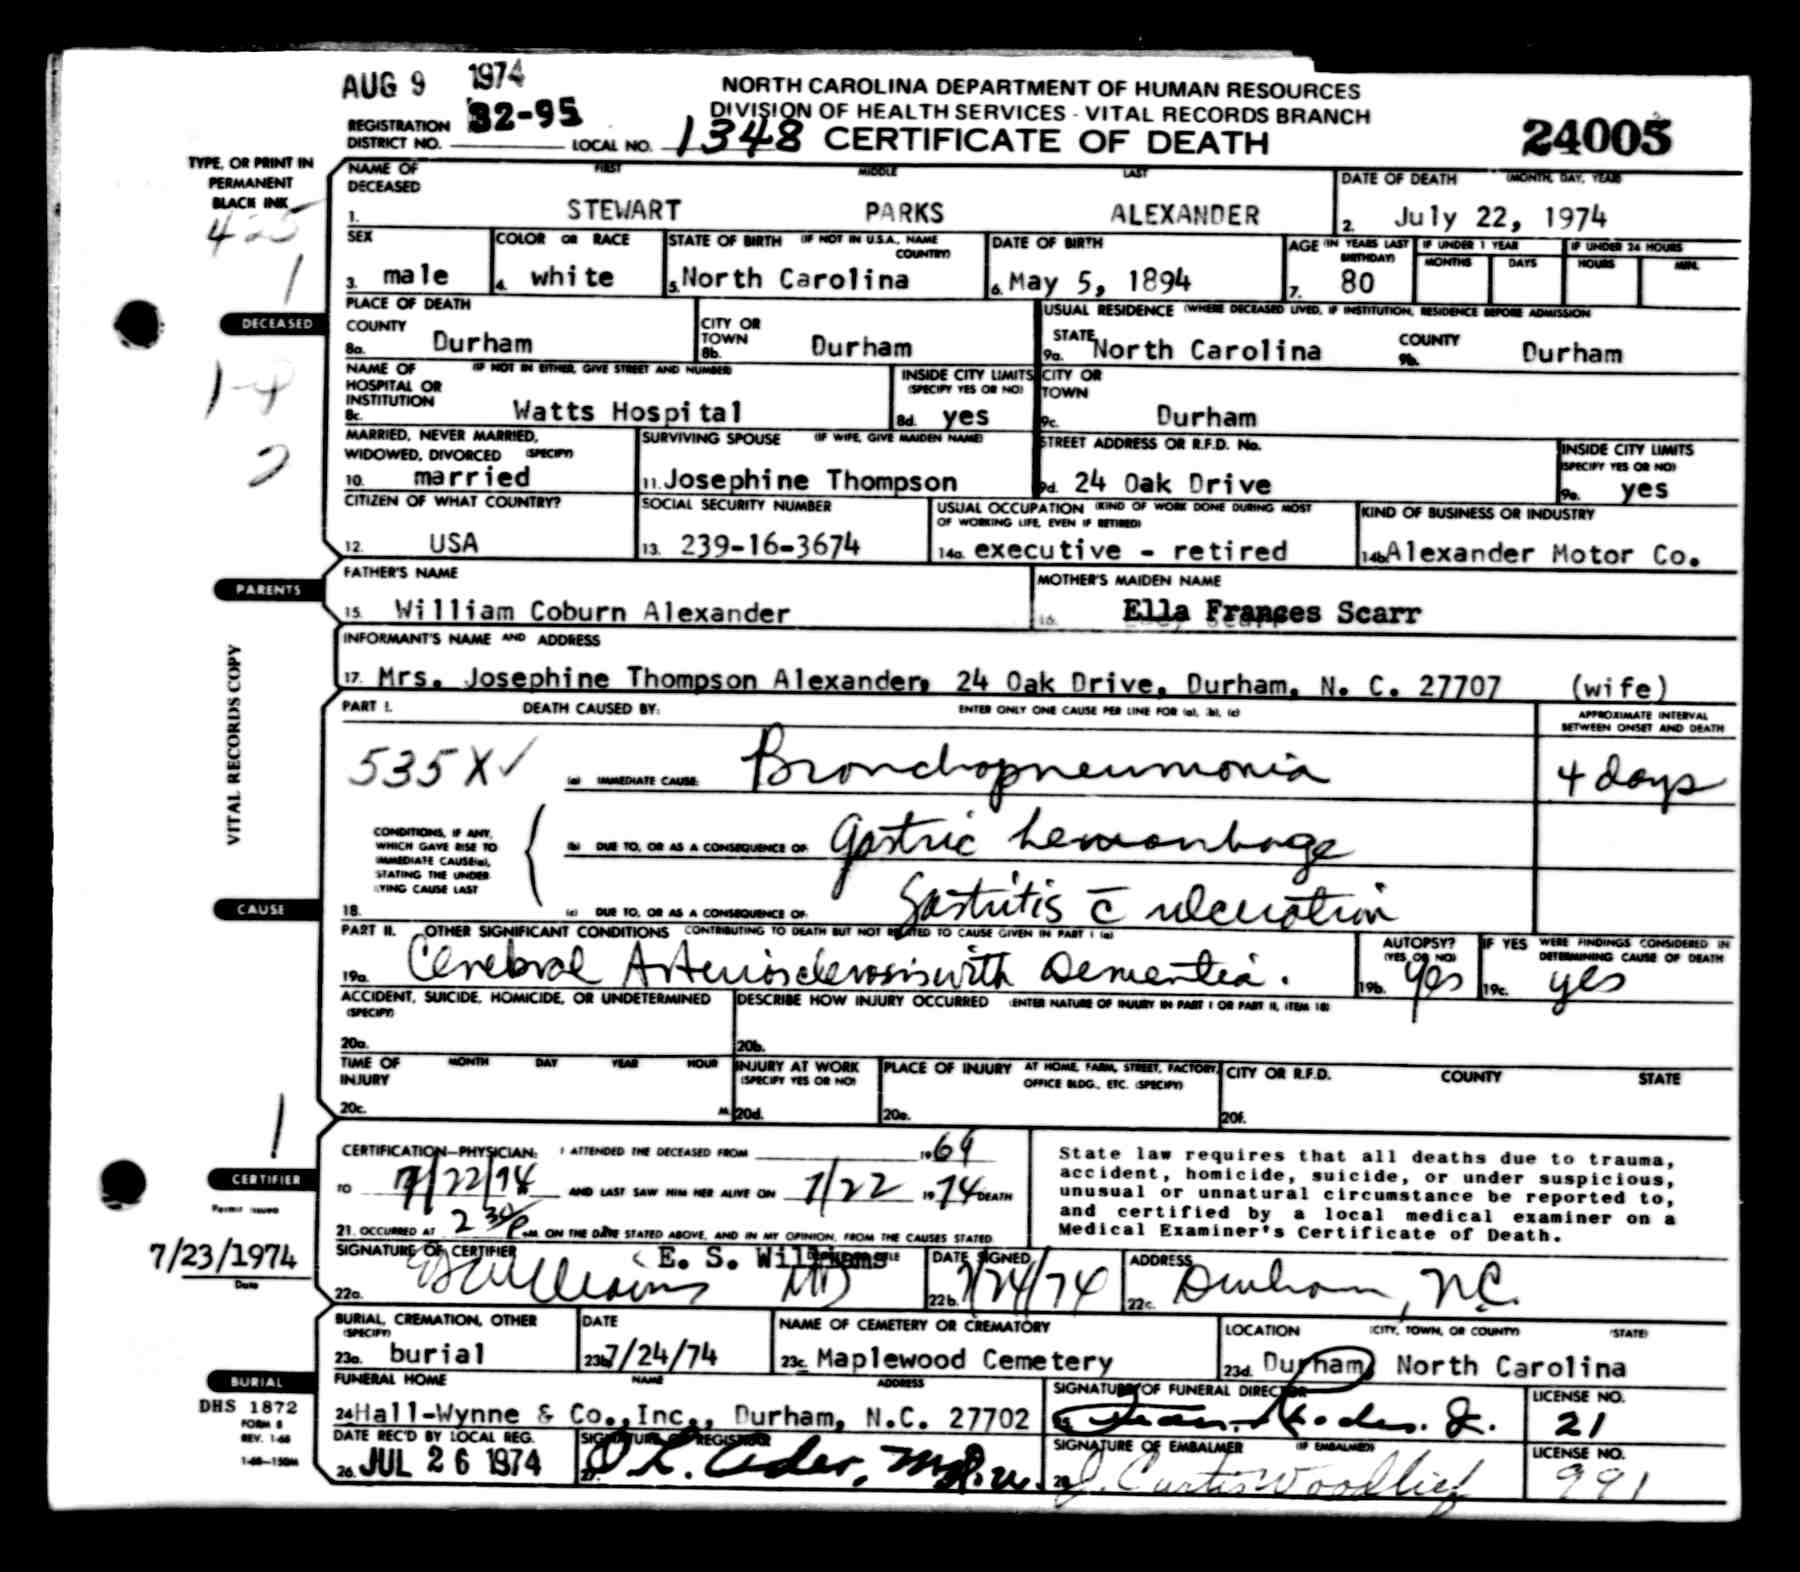 AUG 9 1974
NORTH CAROLINA DEPARTMENT OF HUMAN RESOURCES
DIVISION OF HEALTH SERVICES - VITAL RECORDS BRANCH
REGISTRATION DISTRICT NO. 32-95 LOCAL NO. 1348 CERTIFICATE OF DEATH 24005
TYPE, OR PRINT IN
PERMANENT
BLACK INK
NAME OF DECEASED FIRST MIDDLE LAST DATE OF DEATH (MONTH, DAY, YEAR)
1. STEWART PARKS ALEXANDER 2. July 22, 1974
SEX COLOR OR RACE STATE OF BIRTH (IF NOT IN U.S.A., NAME COUNTRY) DATE OF BIRTH AGE (IN YEARS LAST BIRTHDAY) IF UNDER 1 YEAR IF UNDER 24 HOURS
MONTHS DAYS HOURS MIN.
3. male 4. white 5. North Carolina 6. May 5, 1894 7. 80
DECEASED
PLACE OF DEATH USUAL RESIDENCE (WHERE DECEASED LIVED, IF INSTITUTION, RESIDENCE BEFORE ADMISSION
COUNTY CITY OR TOWN STATE COUNTY
8a. Durham 8b. Durham 9a. North Carolina 9b. Durham
NAME OF HOSPITAL OR INSTITUTION (IF NOT IN EITHER, GIVE STREET AND NUMBER) INSIDE CITY LIMITS (SPECIFY YES OR NO) CITY OR TOWN
8c. Watts Hospital 8d. yes 9c. Durham
MARRIED, NEVER MARRIED, WIDOWED, DIVORCED (SPECIFY) SURVIVING SPOUSE (IF WIFE, GIVE MAIDEN NAME) STREET ADDRESS OR R.F.D. No. INSIDE CITY LIMITS (SPECIFY YES OR NO)
10. married 11. Josephine Thompson 9d. 24 Oak Drive 9e. yes
CITIZEN OF WHAT COUNTRY? SOCIAL SECURITY NUMBER USUAL OCCUPATION (KIND OF WORK DONE DURING MOST OF WORKING LIFE, EVEN IF RETIRED) KIND OF BUSINESS OR INDUSTRY
12. USA 13. 239-16-3674 14a. executive - retired 14b. Alexander Motor Co.
PARENTS
FATHER'S NAME MOTHER'S MAIDEN NAME
15. William Coburn Alexander 16. Ella Frances Scarr
INFORMANT'S NAME AND ADDRESS
17. Mrs. Josephine Thompson Alexander, 24 Oak Drive, Durham, N. C. 27707 (wife)
VITAL RECORDS COPY
PART I. DEATH CAUSED BY: ENTER ONLY ONE CAUSE PER LINE FOR (a), (b), (c) APPROXIMATE INTERVAL BETWEEN ONSET AND DEATH
535X✓ (a) IMMEDIATE CAUSE: Bronchopneumonia 4 days
CONDITIONS, IF ANY,
WHICH GAVE RISE TO
IMMEDIATE CAUSE(a),
STATING THE UNDER
LYING CAUSE LAST
(b) DUE TO, OR AS A CONSEQUENCE OF: Gastric hemorrhage
CAUSE
18. (c) DUE TO, OR AS A CONSEQUENCE OF: Gastritis c̄ ulceration
PART II. OTHER SIGNIFICANT CONDITIONS CONTRIBUTING TO DEATH BUT NOT RELATED TO CAUSE GIVEN IN PART I (a) AUTOPSY? (YES OR NO) IF YES WERE FINDINGS CONSIDERED IN DETERMINING CAUSE OF DEATH
19a. Cerebral Arteriosclerosis with Dementia. 19b. yes 19c. yes
ACCIDENT, SUICIDE, HOMICIDE, OR UNDETERMINED (SPECIFY) DESCRIBE HOW INJURY OCCURRED (ENTER NATURE OF INJURY IN PART I OR PART II, ITEM 18)
20a. 20b.
TIME OF INJURY MONTH DAY YEAR HOUR INJURY AT WORK (SPECIFY YES OR NO) PLACE OF INJURY AT HOME, FARM, STREET, FACTORY, OFFICE BLDG., ETC. (SPECIFY) CITY OR R.F.D. COUNTY STATE
20c. M. 20d. 20e. 20f.
CERTIFIER
CERTIFICATION—PHYSICIAN: I ATTENDED THE DECEASED FROM 1969
TO 7/22/74 AND LAST SAW HIM HER ALIVE ON 7/22 1974 DEATH
21. OCCURRED AT 2 30 P M. ON THE DATE STATED ABOVE, AND IN MY OPINION, FROM THE CAUSES STATED
State law requires that all deaths due to trauma,
accident, homicide, suicide, or under suspicious,
unusual or unnatural circumstance be reported to,
and certified by a local medical examiner on a
Medical Examiner's Certificate of Death.
Permit Issued
7/23/1974
Date
SIGNATURE OF CERTIFIER E. S. Williams DATE SIGNED ADDRESS
22a. ES Williams MD 22b. 7/24/74 22c. Durham, NC.
BURIAL, CREMATION, OTHER (SPECIFY) DATE NAME OF CEMETERY OR CREMATORY LOCATION (CITY, TOWN, OR COUNTY) (STATE)
23a. burial 23b. 7/24/74 23c. Maplewood Cemetery 23d. Durham, North Carolina
BURIAL
FUNERAL HOME NAME ADDRESS SIGNATURE OF FUNERAL DIRECTOR LICENSE NO.
24 Hall-Wynne & Co., Inc., Durham, N.C. 27702 21
DATE REC'D BY LOCAL REG. SIGNATURE OF REGISTRAR SIGNATURE OF EMBALMER (IF EMBALMED) LICENSE NO.
26. JUL 26 1974 27. 28. J. Curtis Woodlief 991
DHS 1872
FORM 8
REV. 1-68
1-68—150M